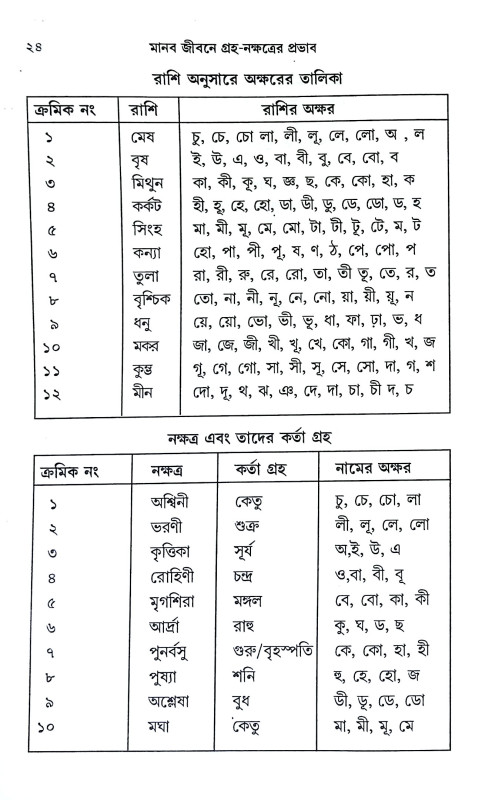 ২৪ মানব জীবনে গ্রহ-নক্ষত্রের প্রভাব
রাশি অনুসারে অক্ষরের তালিকা
ক্রমিক নং রাশি রাশির অক্ষর
১ মেষ চু, চে, চো লা, লী, লূ, লে, লো, অ , ল
২ বৃষ ই, উ, এ, ও, বা, বী, বু, বে, বো, ব
৩ মিথুন কা, কী, কূ, ঘ, জ্ঞ, ছ, কে, কো, হা, ক
৪ কর্কট হী, হূ, হে, হো, ডা, ডী, ডু, ডে, ডো, ড, হ
৫ সিংহ মা, মী, মূ, মে, মো, টা, টী, টু, টে, ম, ট
৬ কন্যা হো, পা, পী, পূ, ষ, ণ, ঠ, পে, পো, প
৭ তুলা রা, রী, রু, রে, রো, তা, তী তৃ, তে, র, ত
৮ বৃশ্চিক তো, না, নী, নূ, নে, নো, য়া, য়ী, য়ূ, ন
৯ ধনু য়ে, য়ো, ভো, ভী, ভূ, ধা, ফা, ঢা, ভ, ধ
১০ মকর জা, জে, জী, খী, খূ, খে, কো, গা, গী, খ, জ
১১ কুম্ভ গূ, গে, গো, সা, সী, সূ, সে, সো, দা, গ, শ
১২ মীন দো, দূ, থ, ঝ, ঞ, দে, দা, চা, চী দ, চ
নক্ষত্র এবং তাদের কর্তা গ্রহ
ক্রমিক নং নক্ষত্র কর্তা গ্রহ নামের অক্ষর
১ অশ্বিনী কেতু চু, চে, চো, লা
২ ভরণী শুক্র লী, লূ, লে, লো
৩ কৃত্তিকা সূর্য অ,ই, উ, এ
৪ রোহিণী চন্দ্র ও,বা, বী, বূ
৫ মৃগশিরা মঙ্গল বে, বো, কা, কী
৬ আর্দ্রা রাহু কু, ঘ, ড, ছ
৭ পুনর্বসু গুরু/বৃহস্পতি কে, কো, হা, হী
৮ পুষ্যা শনি হু, হে, হো, জ
৯ অশ্লেষা বুধ ডী, ডূ, ডে, ডো
১০ মঘা কেতু মা, মী, মূ, মে